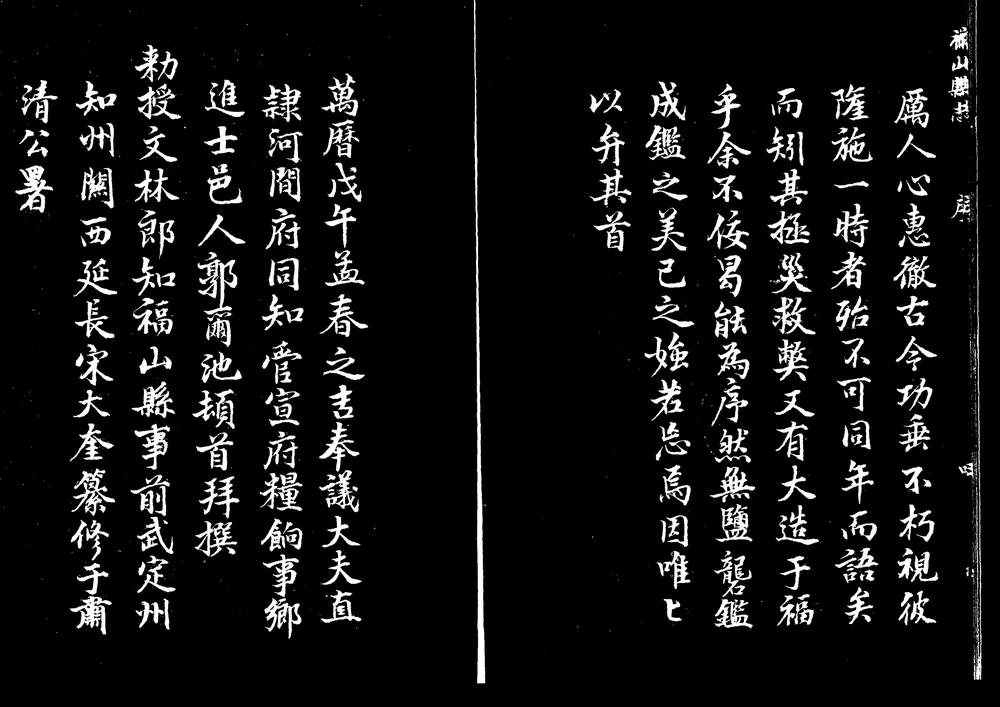 福山縣志
序
四
厲人心惠徹古今功垂不朽視彼
隆施一時者殆不可同年而語矣
而矧其拯災救獘又有大造于福
乎余不佞曷能為序然無鹽礱鑑
成鑑之美已之媸若忘焉因唯匕
以弁其首
萬曆戊午益春之吉奉議大夫直
隸河間府同知管宣府糧餉事鄉
進士邑人郭爾池頓首拜撰
勅授文林郎知福山縣事前武定州
知州關西延長宋大奎纂修于肅
清公署